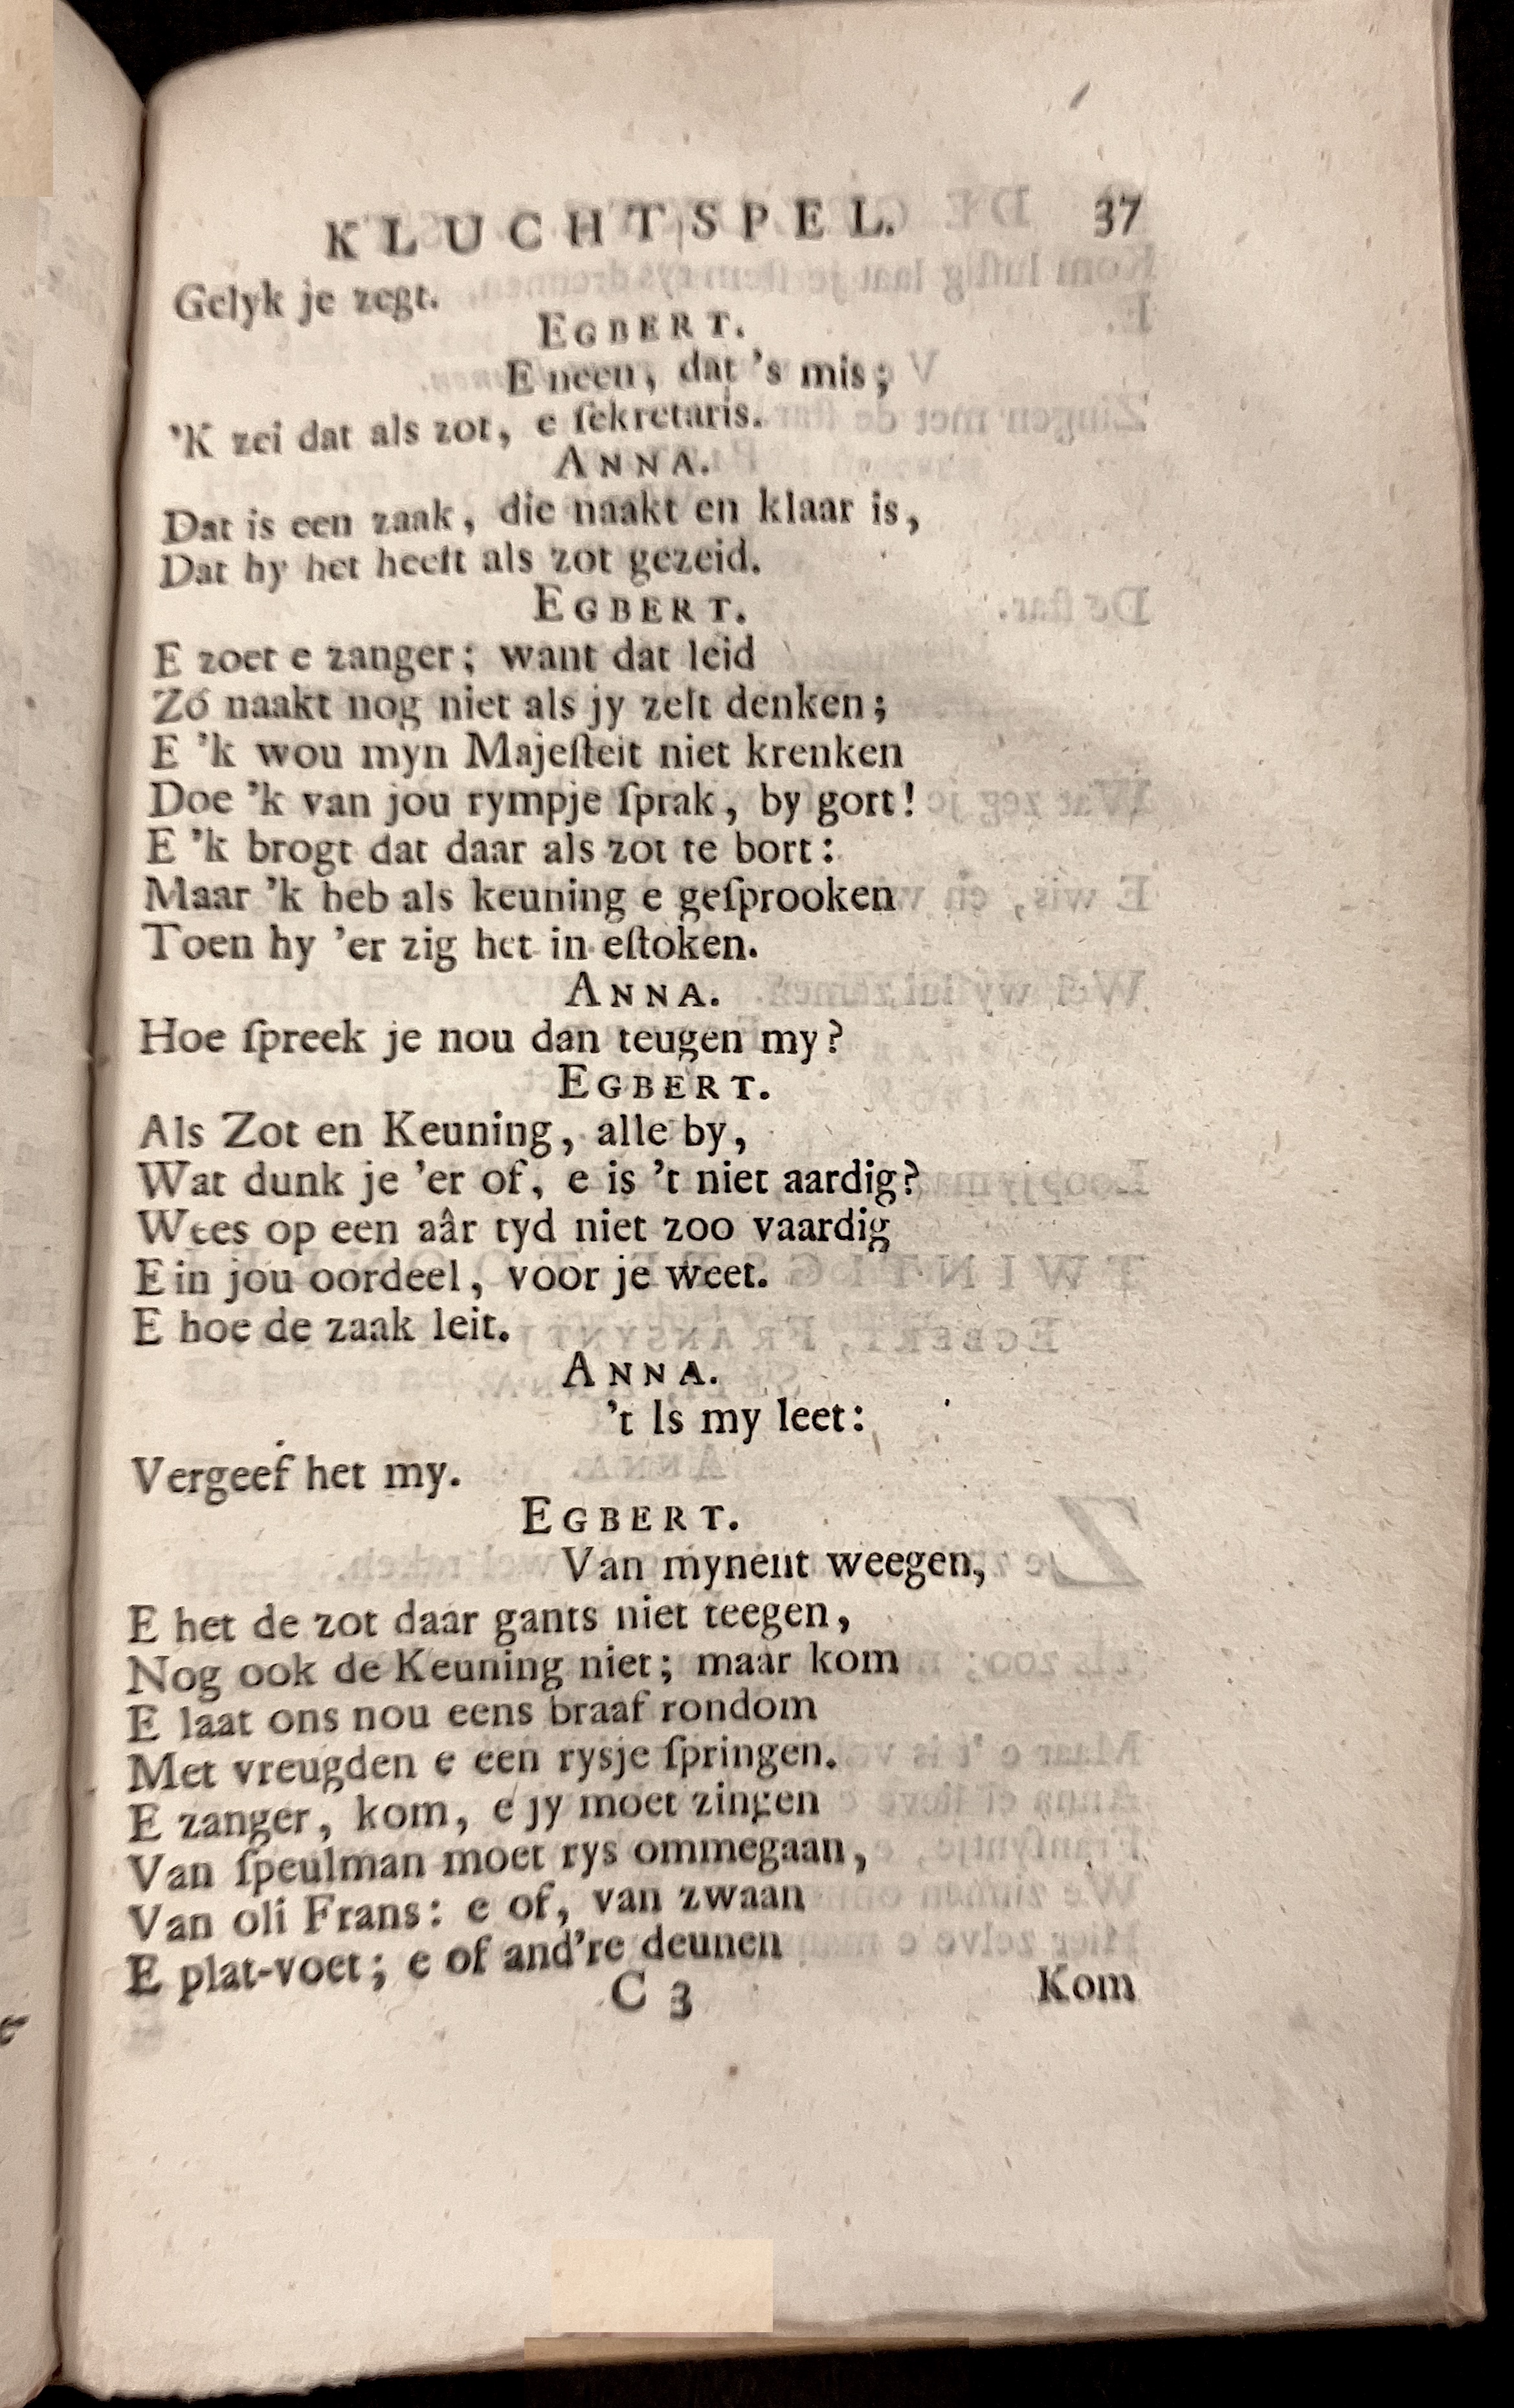 KLUCHTSPEL. 37
Gelyk je zegt.
EGBERT.
E neen, dat 's mis;
'K zei dat als zot, e ſekretaris.
ANNA.
Dat is een zaak, die naakt en klaar is,
Dat hy het heeft als zot gezeid.
EGBERT.
E zoet e zanger; want dat leid
Zó naakt nog niet als jy zelt denken;
E 'k wou myn Majeſteit niet krenken
Doe 'k van jou rympje ſprak, by gort!
E 'k brogt dat daar als zot te bort:
Maar 'k heb als keuning e geſprooken
Toen hy 'er zig het in eſtoken.
ANNA.
Hoe ſpreek je nou dan teugen my?
EGBERT.
Als Zot en Keuning, alle by,
Wat dunk je 'er of, e is 't niet aardig?
Wees op een aâr tyd niet zoo vaardig
E in jou oordeel, voor je weet.
E hoe de zaak leit.
ANNA.
't Is my leet:
Vergeef het my.
EGBERT.
Van mynent weegen,
E het de zot daar gants niet teegen,
Nog ook de Keuning niet; maar kom
E laat ons nou eens braaf rondom
Met vreugden e een rysje ſpringen.
E zanger, kom, e jy moet zingen
Van ſpeulman moet rys ommegaan,
Van oli Frans: e of, van zwaan
E plat-voet; e of and're deunen
C 3 Kom